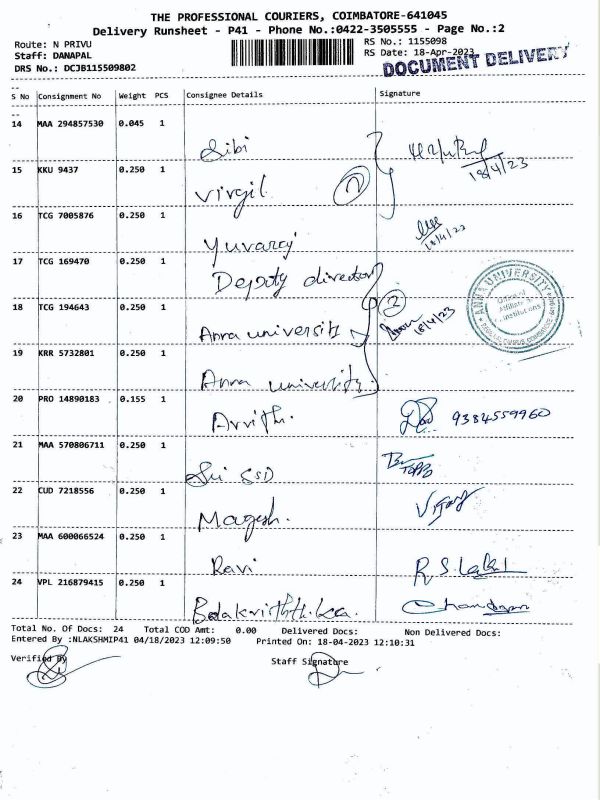 THE PROFESSIONAL COURIERS, COIMBATORE-641045
Delivery Runsheet - P41 - Phone No.:0422-3505555 - Page No.:2
Route: N PRIVU
RS No.: 1155098
Staff: DANAPAL
RS Date: 18-Apr-2023
DRS No.: DCJB115509802
DOCUMENT DELIVERY
S No Consignment No Weight PCS Consignee Details Signature
14 MAA 294857530 0.045 1
Sibi
18/4/23
15 KKU 9437 0.250 1
Virgil 2
16 TCG 7005876 0.250 1
18/4/23
Yuvaraj
17 TCG 169470 0.250 1
Deputy director
18 TCG 194643 0.250 1
2
18/4/23
Anna university
ANNA UNIVERSITY
Office of
Affiliated
Institutions
19 KRR 5732801 0.250 1
Anna university
20 PRO 14890183 0.155 1
Arvith. 9384559960
21 MAA 570806711 0.250 1
Sri SSD
22 CUD 7218556 0.250 1
Magesh.
23 MAA 600066524 0.250 1
Ravi
24 VPL 216879415 0.250 1
Total No. Of Docs: 24 Total COD Amt: 0.00 Delivered Docs: Non Delivered Docs:
Entered By :NLAKSHMIP41 04/18/2023 12:09:50 Printed On: 18-04-2023 12:10:31
Verified By Staff Signature